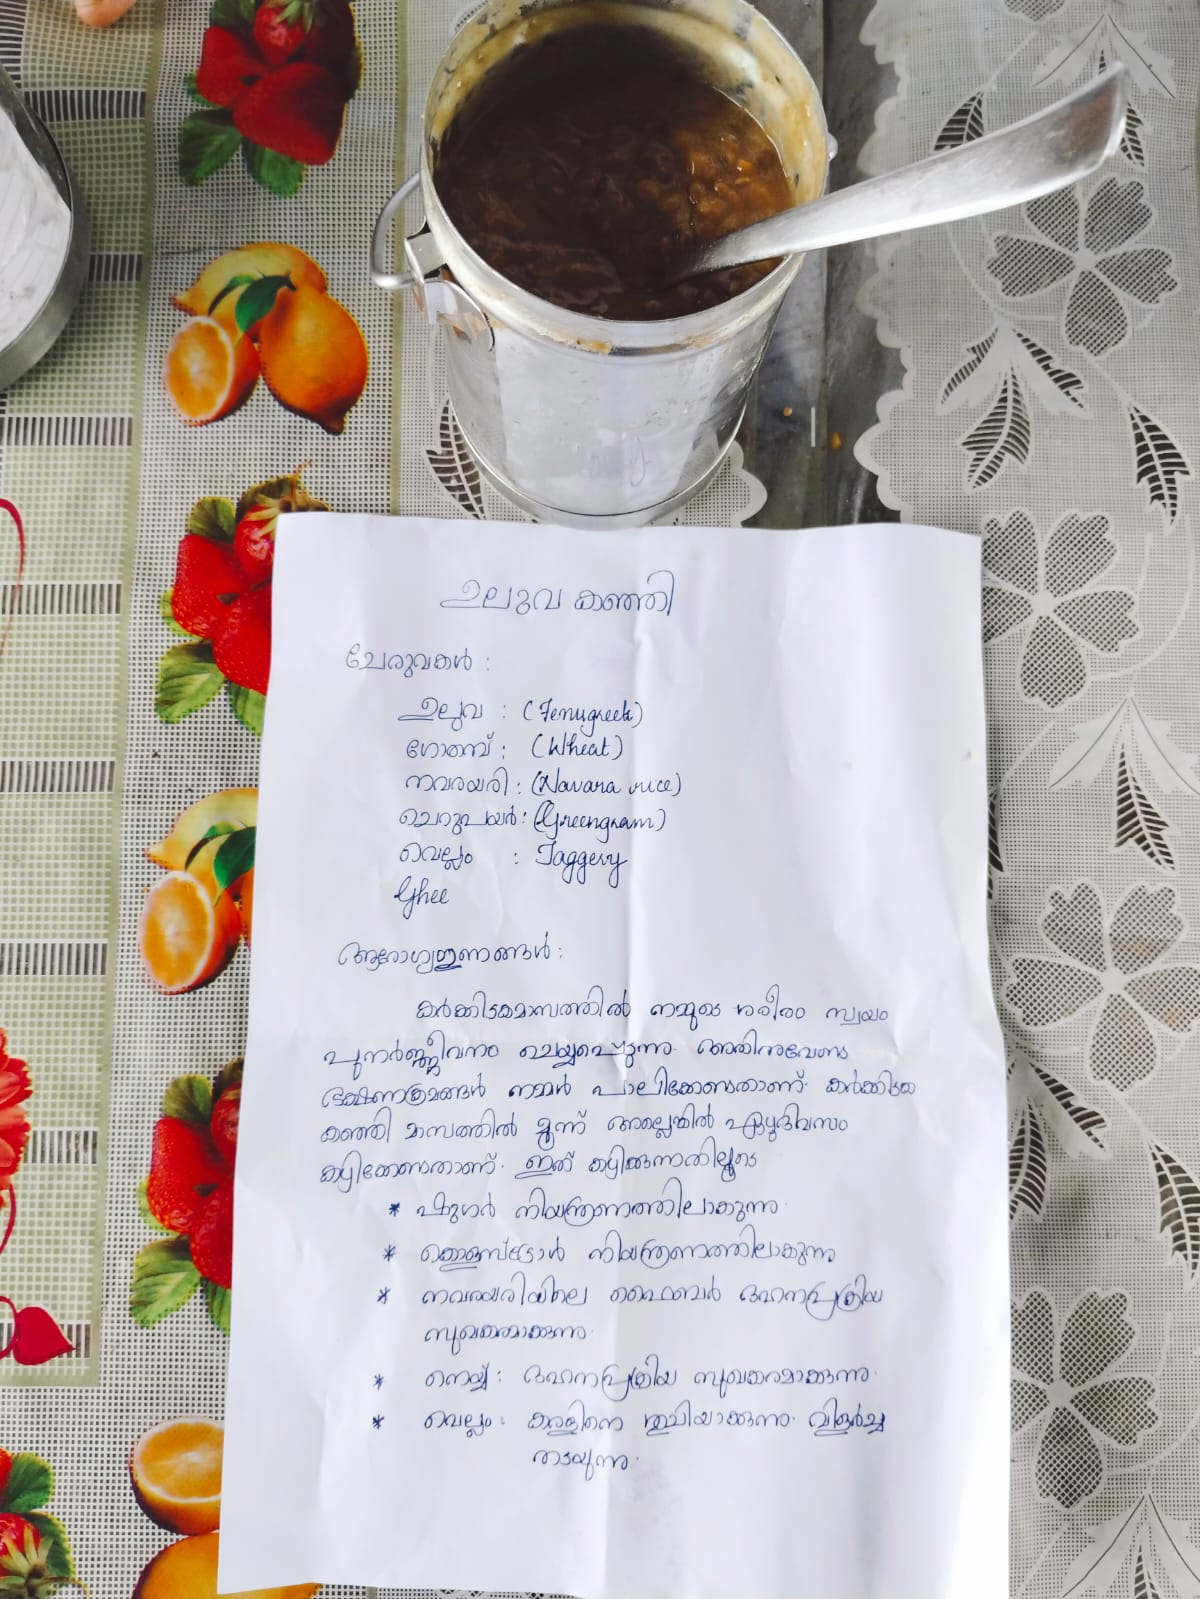 ഉലുവ കഞ്ഞി
ചേരുവകൾ :
ഉലുവ : (Fenugreek)
ഗോതമ്പ് : (Wheat)
നവരയരി : (Navara rice)
ചെറുപയർ : (Greengram)
വെല്ലം : Jaggery
Ghee
ആരോഗ്യഗുണങ്ങൾ :
കർക്കിടകമാസത്തിൽ നമ്മുടെ ശരീരം സ്വയം
പുനർജ്ജീവനം ചെയ്യപ്പെടുന്നു. അതിനുവേണ്ട
ഭക്ഷണക്രമങ്ങൾ നമ്മൾ പാലിക്കേണ്ടതാണ്. കർക്കിടക
കഞ്ഞി മാസത്തിൽ മൂന്ന് അല്ലെങ്കിൽ ഏഴുദിവസം
കഴിക്കേണ്ടതാണ്. ഇത് കഴിക്കുന്നതിലൂടെ
* ഷുഗർ നിയന്ത്രണത്തിലാകുന്നു.
* കൊളസ്ട്രോൾ നിയന്ത്രണത്തിലാകുന്നു
* നവരയരിയിലെ ഫൈബർ ദഹനപ്രക്രിയ
സുഖകരമാക്കുന്നു.
* നെയ്യ് : ദഹനപ്രക്രിയ സുഖകരമാക്കുന്നു.
* വെല്ലം : കരളിനെ ശുചിയാക്കുന്നു. വിളർച്ച
തടയുന്നു.